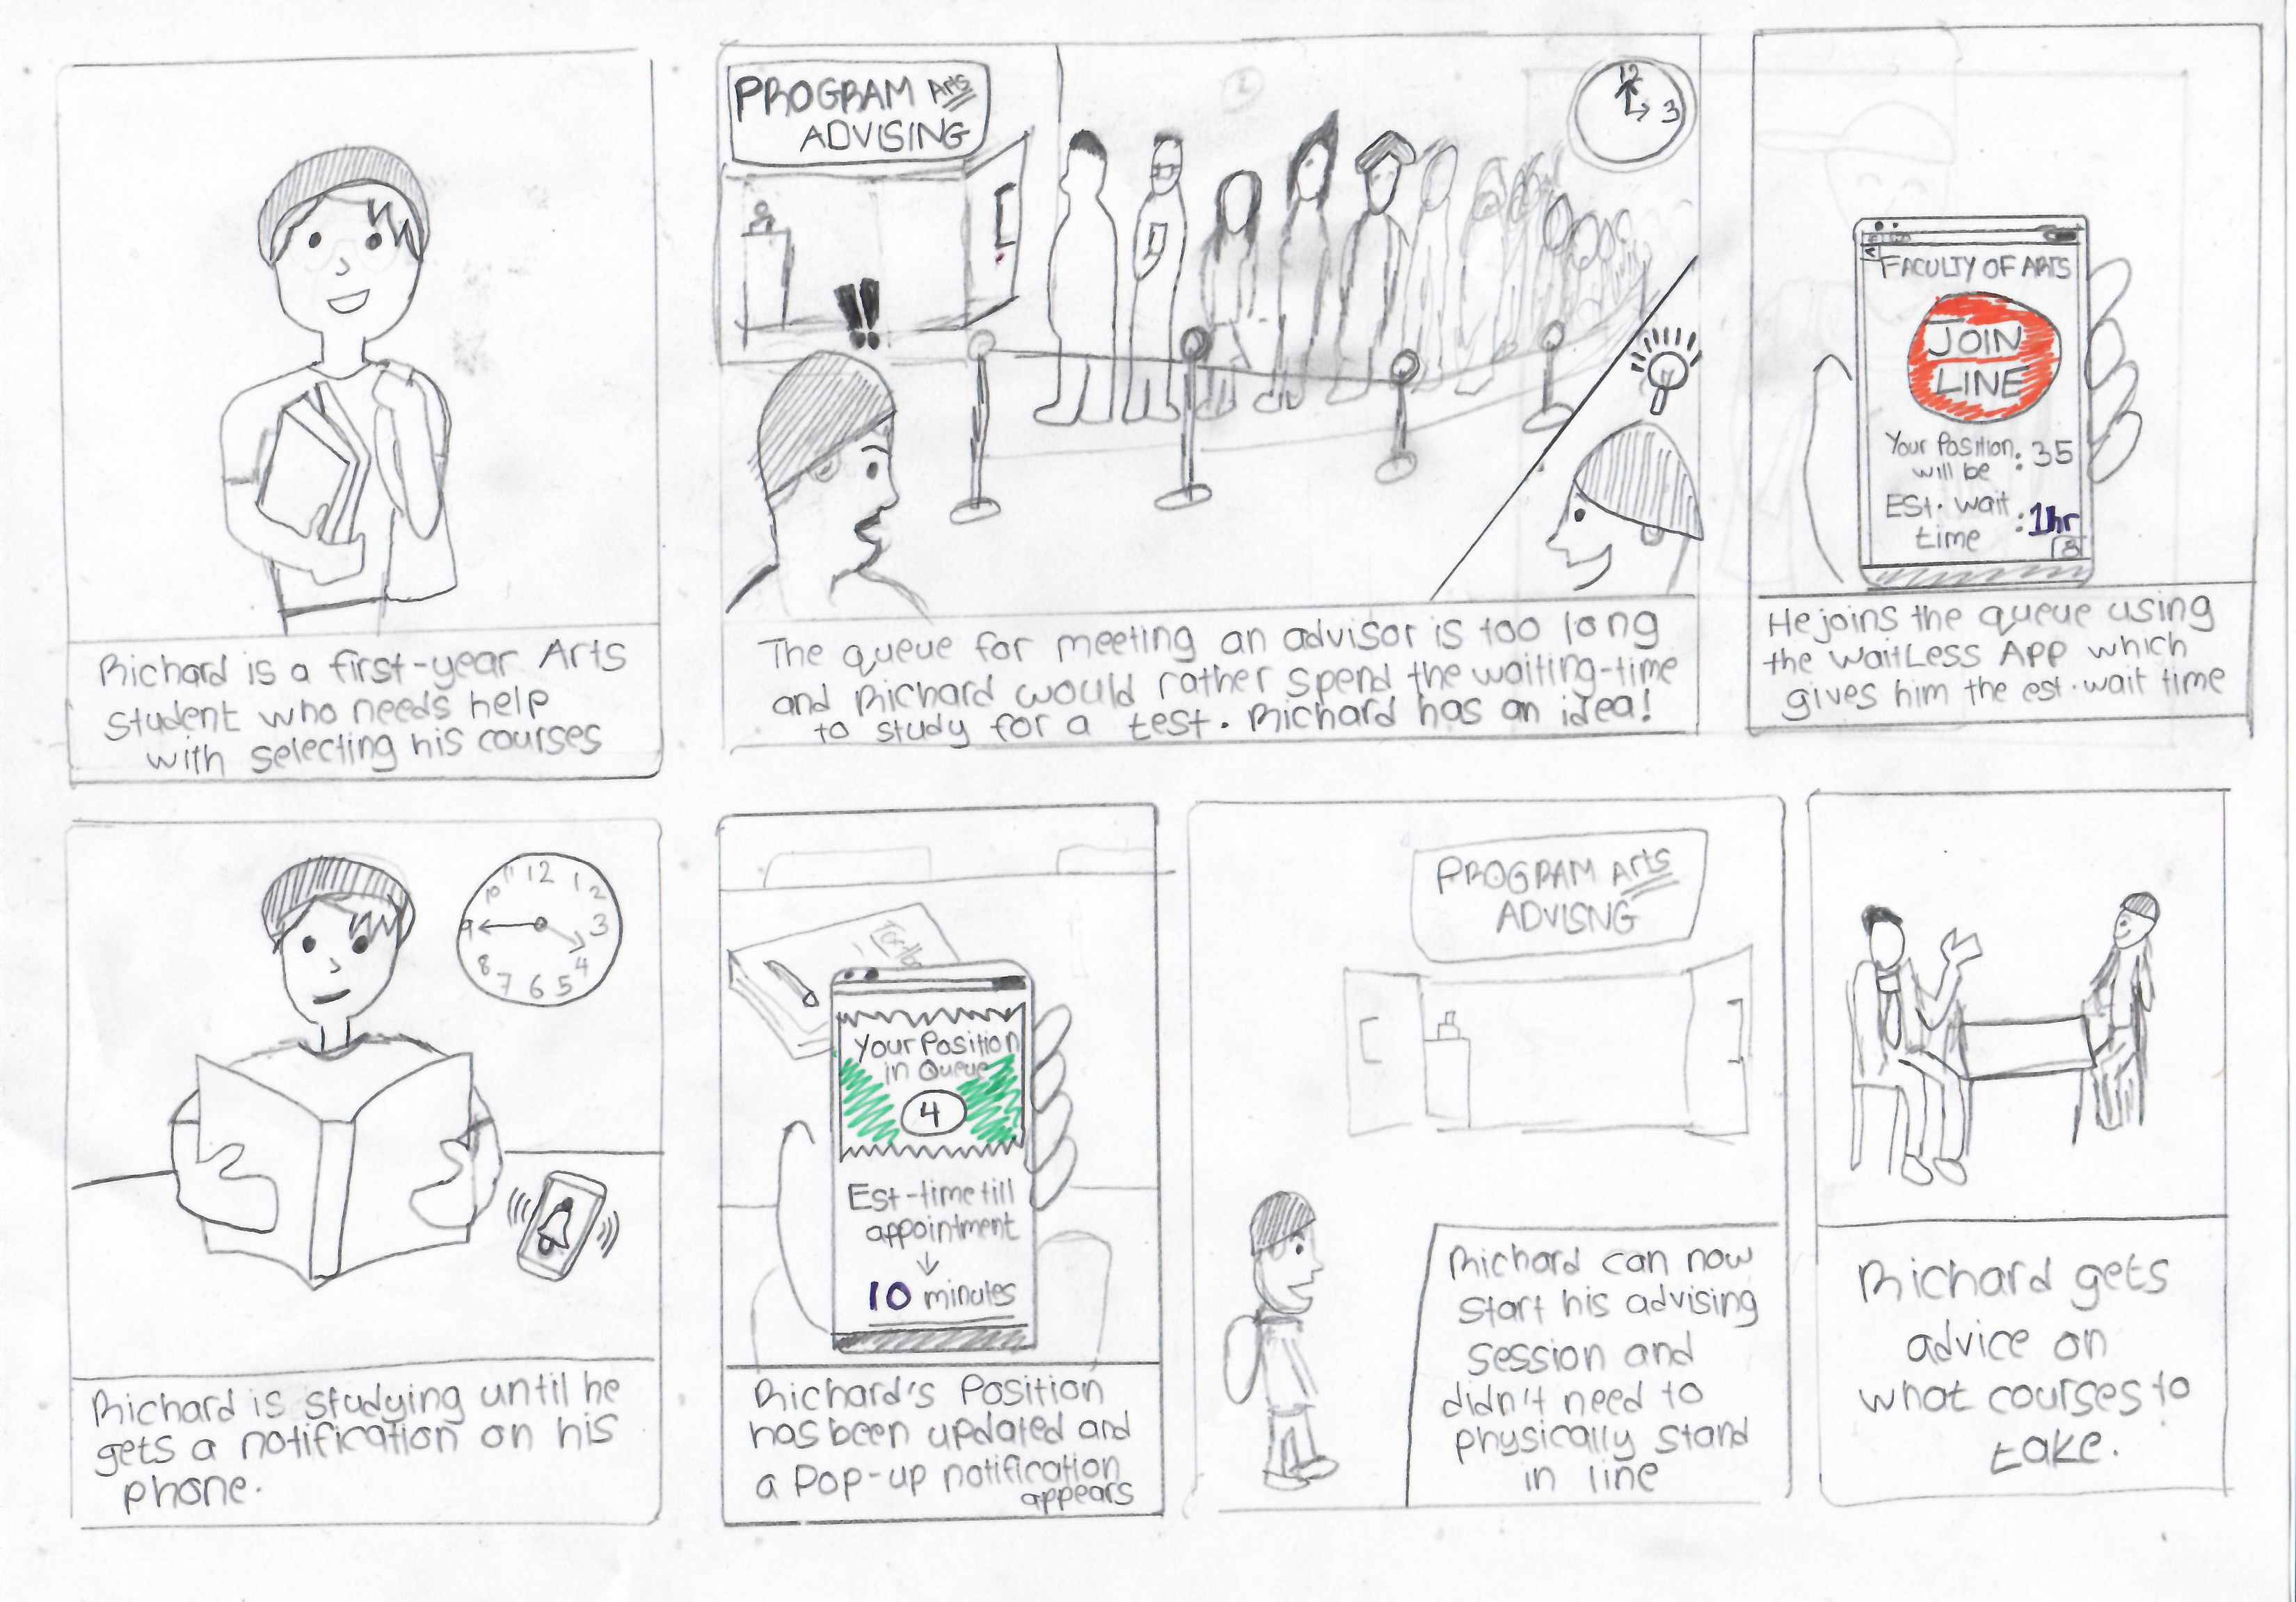 Richard is a first-year Arts
student who needs help
with selecting his courses
PROGRAM Arts
ADVISING
12
3
The queue for meeting an advisor is too long
and Richard would rather spend the waiting-time
to study for a test. Richard has an idea!
FACULTY OF ARTS
JOIN
LINE
Your Position
will be : 35
Est. wait
time : 1hr
He joins the queue using
the WaitLess App which
gives him the est. wait time
12
11
1
10
2
9
3
8
4
7
6
5
Richard is studying until he
gets a notification on his
phone.
Your Position
in Queue
4
Est-time till
appointment
10 minutes
Richard's Position
has been updated and
a Pop-up notification
appears
PROGRAM Arts
ADVISNG
Richard can now
start his advising
session and
didn't need to
physically stand
in line
Richard gets
advice on
what courses to
take.